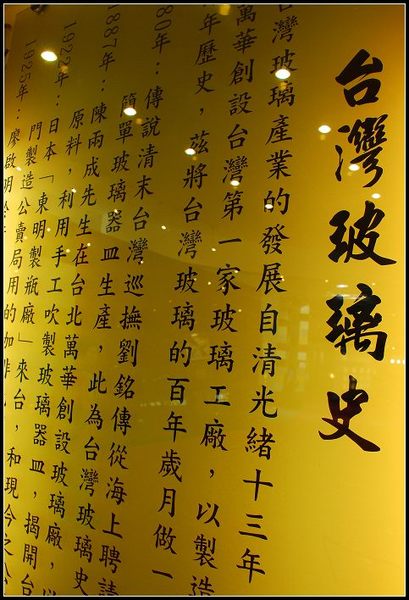 台灣玻璃史
台灣玻璃產業的發展自清光緒十三年
萬華創設台灣第一家玻璃工廠，以製造
年歷史，茲將台灣玻璃的百年歲月做一
80年：傳說清末台灣巡撫劉銘傳從海上聘請
簡單玻璃器皿生產，此為台灣玻璃史
1887年：陳雨成先生在台北萬華創設玻璃廠，以
原料，利用手工吹製玻璃器皿，揭開台
1922年：日本「東明製瓶廠」來台，和現今之公
門製造公賣局用的
1925年：廖啟明